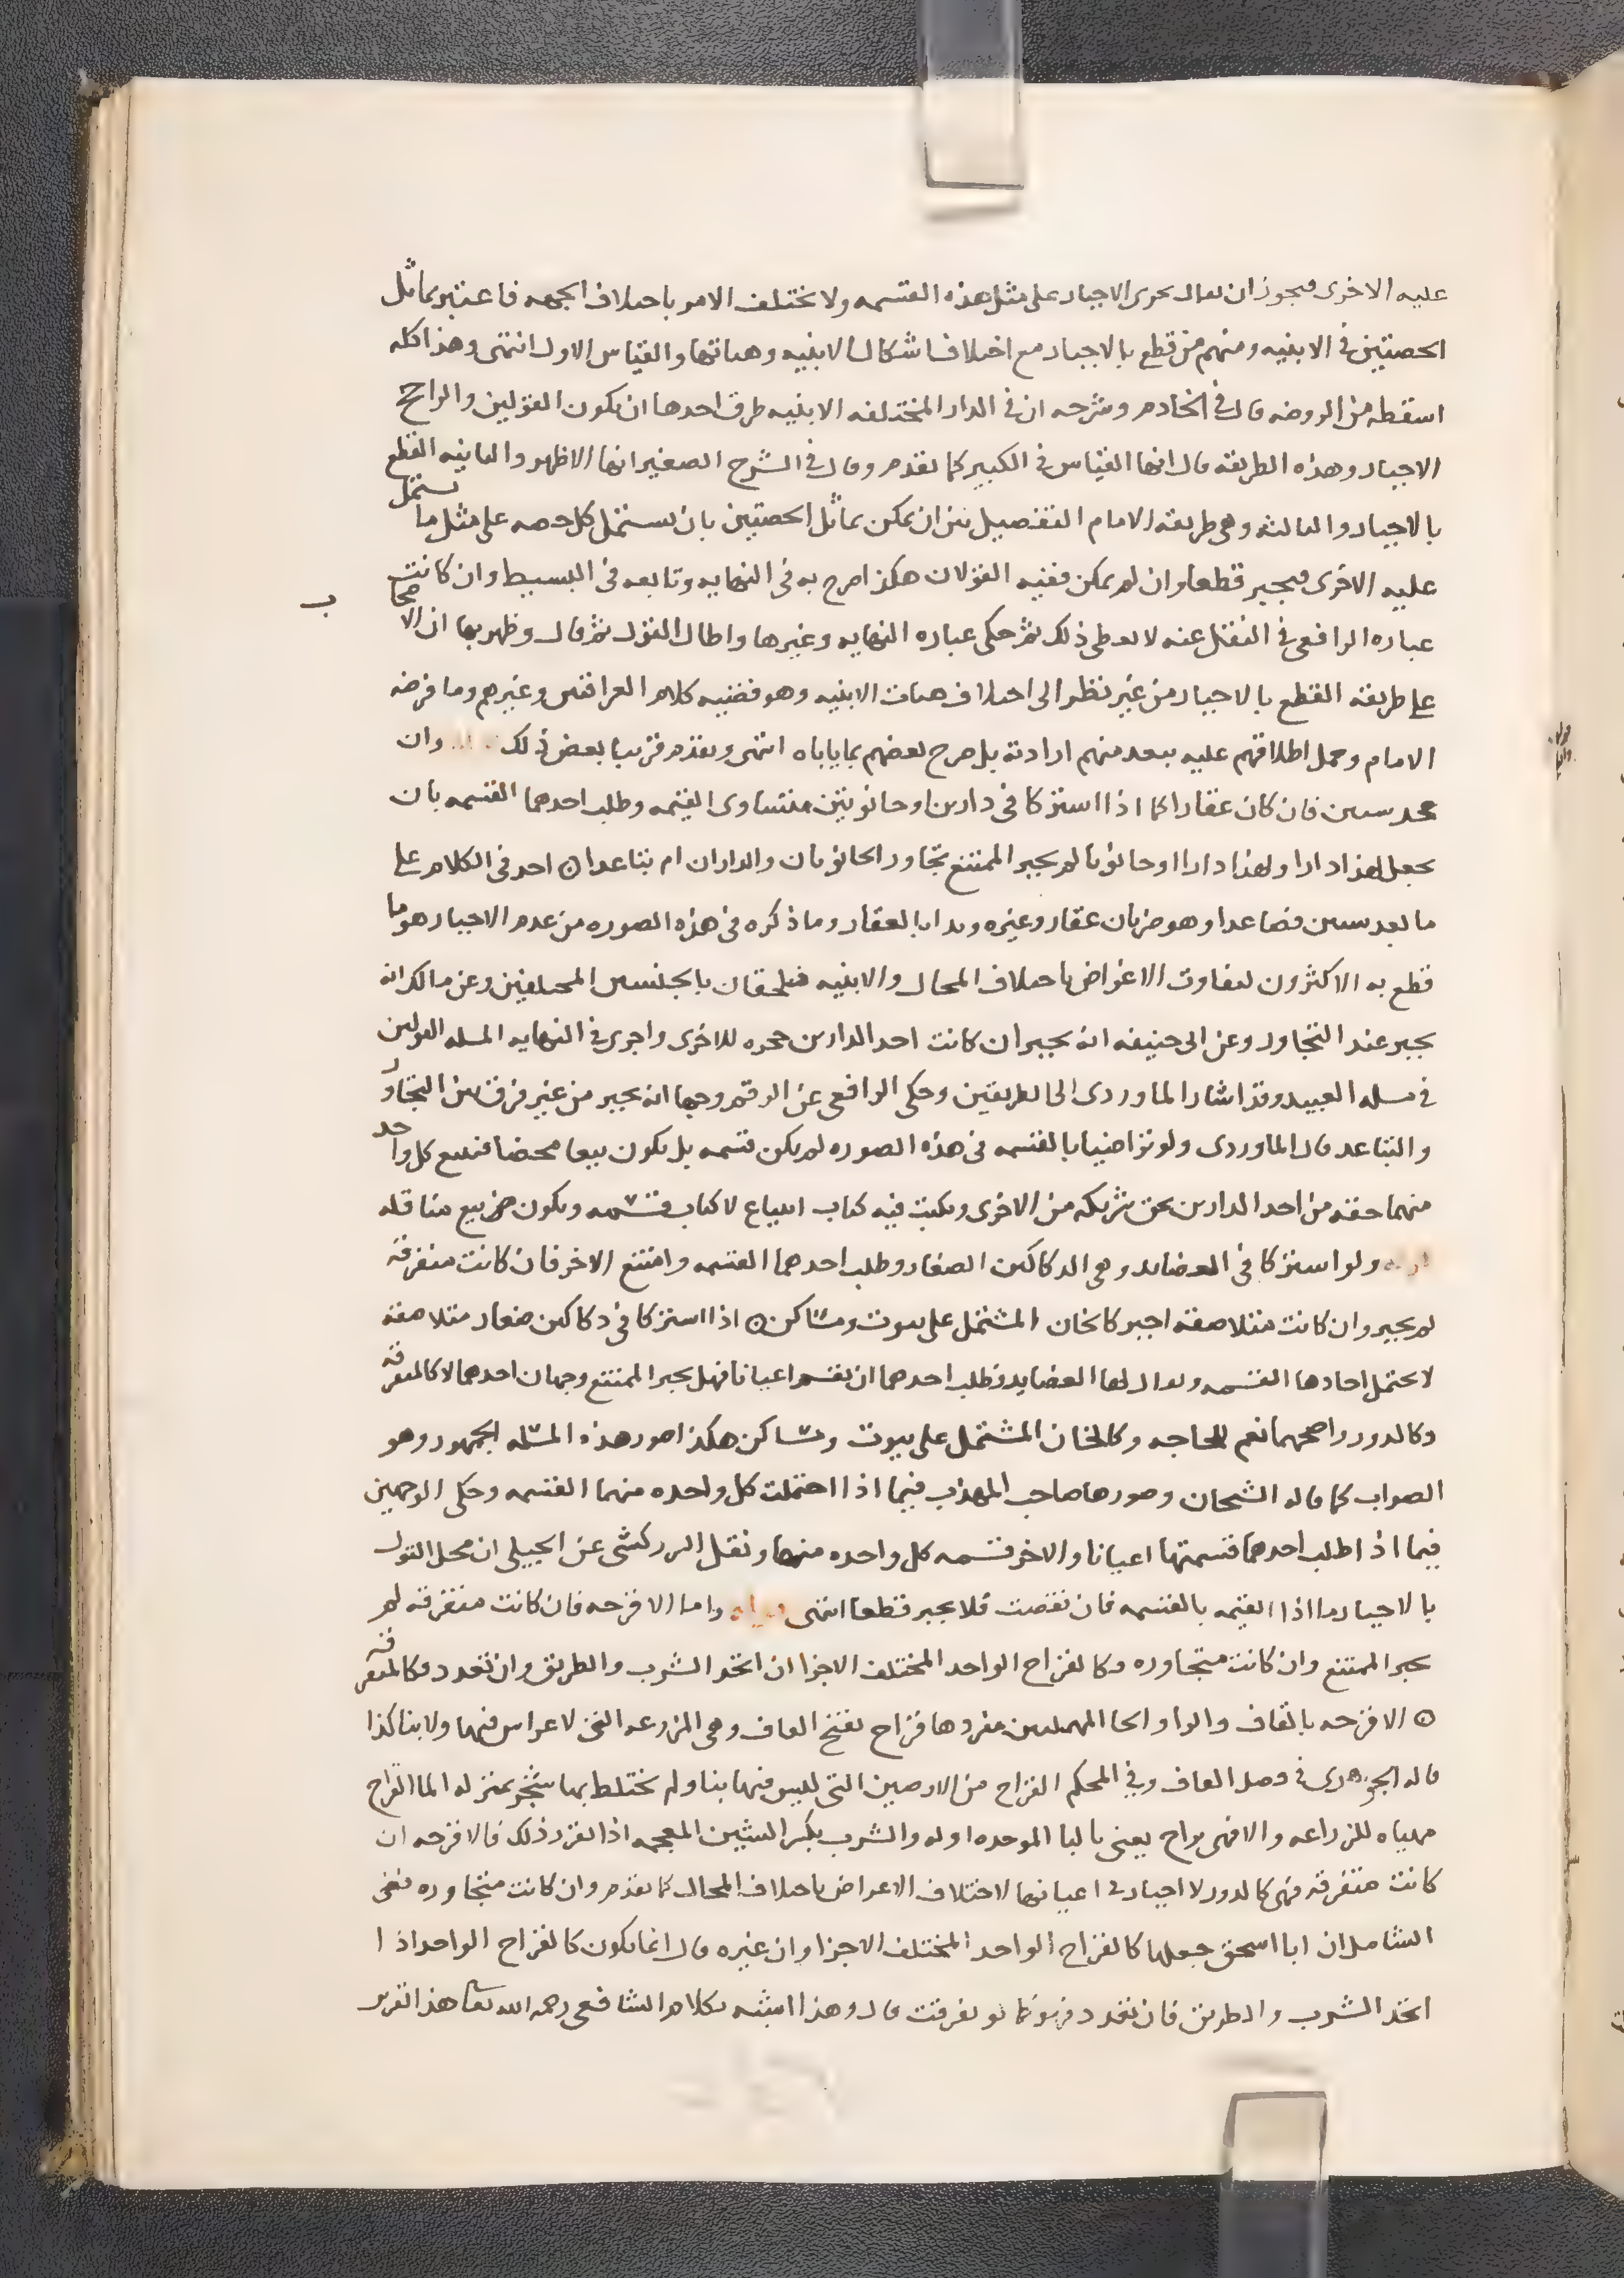 عليه الاخرى فيجوز ان يقال يجرى الاجبار على مثل هذه القسمه ولا يختلف الامر باختلاف الجهه فاعتبر تماثل
الحصتين في الابنيه ومنهم من قطع بالاجبار مع اختلاف اشكال الابنيه وهياتها والقياس الاول انتهى وهذا كله
اسقطه من الروضه قال في الخادم وشرحه ان في الدار المختلفه الابنيه طرق احدها ان يكون القولين والراجح
الاجبار وهذه الطريقه قال انها القياس في الكبير كما تقدم وقال في الشرح الصغير انها الاظهر والثانيه القطع
بالاجبار والثالثه وهي طريقه الامام التفصيل بين ان يمكن تماثل الحصتين بان يستمل كل حصه على مثل ما يستمل
عليه الاخرى فيجبر قطعا وان لم يمكن ففيه القولان هكذا صرح به في النهايه وتابعه في البسيط وان كانت
عباره الرافعي في النقل عنه لا تعطى ذلك ثم حكى عباره النهايه وغيرها واطال القول ثم قال وظهر بها ان الاصحاب
على طريقه القطع بالاجبار من غير نظر الى اختلاف هيات الابنيه وهو قضيه كلام العراقيين وغيرهم وما فرضه
الامام وحمل اطلاقهم عليه يبعد منهم ارادته بل صرح بعضهم بما ياباه انتهى وتقدم قريبا بعض ذلك وان
تعدد شيئين فان كان عقارا كما اذا اشتركا في دارين او حانوتين متساوى القيمه وطلب احدهما القسمه بان
يجعل لهذا دارا ولهذا دارا او حانوتا لم يجبر الممتنع تجاور الحانوتان والداران ام تباعدا ۞ اخذ في الكلام على
ما يعد شيئين فصاعدا وهو ضربان عقار وغيره وبدا بالعقار وما ذكره في هذه الصوره من عدم الاجبار هو ما
قطع به الاكثرون لتفاوت الاغراض باختلاف المحال والابنيه فيلحقان بالجنسين المختلفين وعن مالك انه
يجبر عند التجاور وعن ابي حنيفه انه يجبر ان كانت احد الدارين حجره للاخرى واجرى في النهايه المسله القولين
في مسله العبيد وقد اشار الماوردى الى الطريقين وحكى الرافعي عن الرقم وجها انه يجبر من غير فرق بين التجاور
والتباعد قال الماوردى ولو تراضيا بالقسمه في هذه الصوره لم يكن قسمه بل يكون بيعا محضا فيبيع كل واحد
منهما حقه من احد الدارين بحق شريكه من الاخرى ويكتب فيه كتاب ابتياع لا كتاب قسمه ويكون من بيع مناقله
ولو اشتركا في العضايد وهي الدكاكين الصغار وطلب احدهما القسمه وامتنع الاخر فان كانت متفرقه
لم يجبر وان كانت متلاصقه اجبر كالخان المشتمل على بيوت ومساكن ۞ اذا اشتركا في دكاكين صغار متلاصقه
لا يحتمل احادها القسمه ويقال لها العضايد فطلب احدهما ان يقسم اعيانا فهل يجبر الممتنع وجهان احدهما لا كالمتفرقه
وكالدور واصحهما نعم للحاجه وكالخان المشتمل على بيوت ومساكن هكذا صور هذه المسله الجمهور وهو
الصواب كما قاله الشيخان وصورها صاحب المهذب فيما اذا احتملت كل واحده منهما القسمه وحكى الوجهين
فيما اذا طلب احدهما قسمتها اعيانا والاخر قسمه كل واحده منها ونقل الزركشى عن الجيلى ان محل القول
بالاجبار ما اذا القيمه بالقسمه فان نقصت فلا يجبر قطعا انتهى واما الاقرحه فان كانت متفرقه لم
يجبر الممتنع وان كانت متجاوره فكالقراح الواحد المختلف الاجزا ان اتحد الشرب والطريق وان تعدد فكالمتفرقه
۞ الاقرحه بالقاف والرا والحا المهملتين مفردها قراح بفتح القاف وهي المزرعه التى لا غراس فيها ولا بنا كذا
قاله الجوهرى في فصل القاف وفي المحكم القراح من الارضين التى ليس فيها بنا ولم يختلط بها شجر بمنزله الما القراح
مهياه للزراعه والا فهى براح يعنى بالبا الموحده اوله والشرب بكسر الشين المعجمه اذا تقرر ذلك فالاقرحه ان
كانت متفرقه فهى كالدور لا اجبار في اعيانها لاختلاف الاغراض باختلاف المحال كما تقدم وان كانت متجاوره ففى
الشامل ان ابا اسحق جعلها كالقراح الواحد المختلف الاجزا وان غيره قال انما يكون كالقراح الواحد اذا
اتحد الشرب والطريق فان تعدد فهو كما لو تفرقت قال وهذا اشبه بكلام الشافعى رحمه الله تعالى هذا تقرير